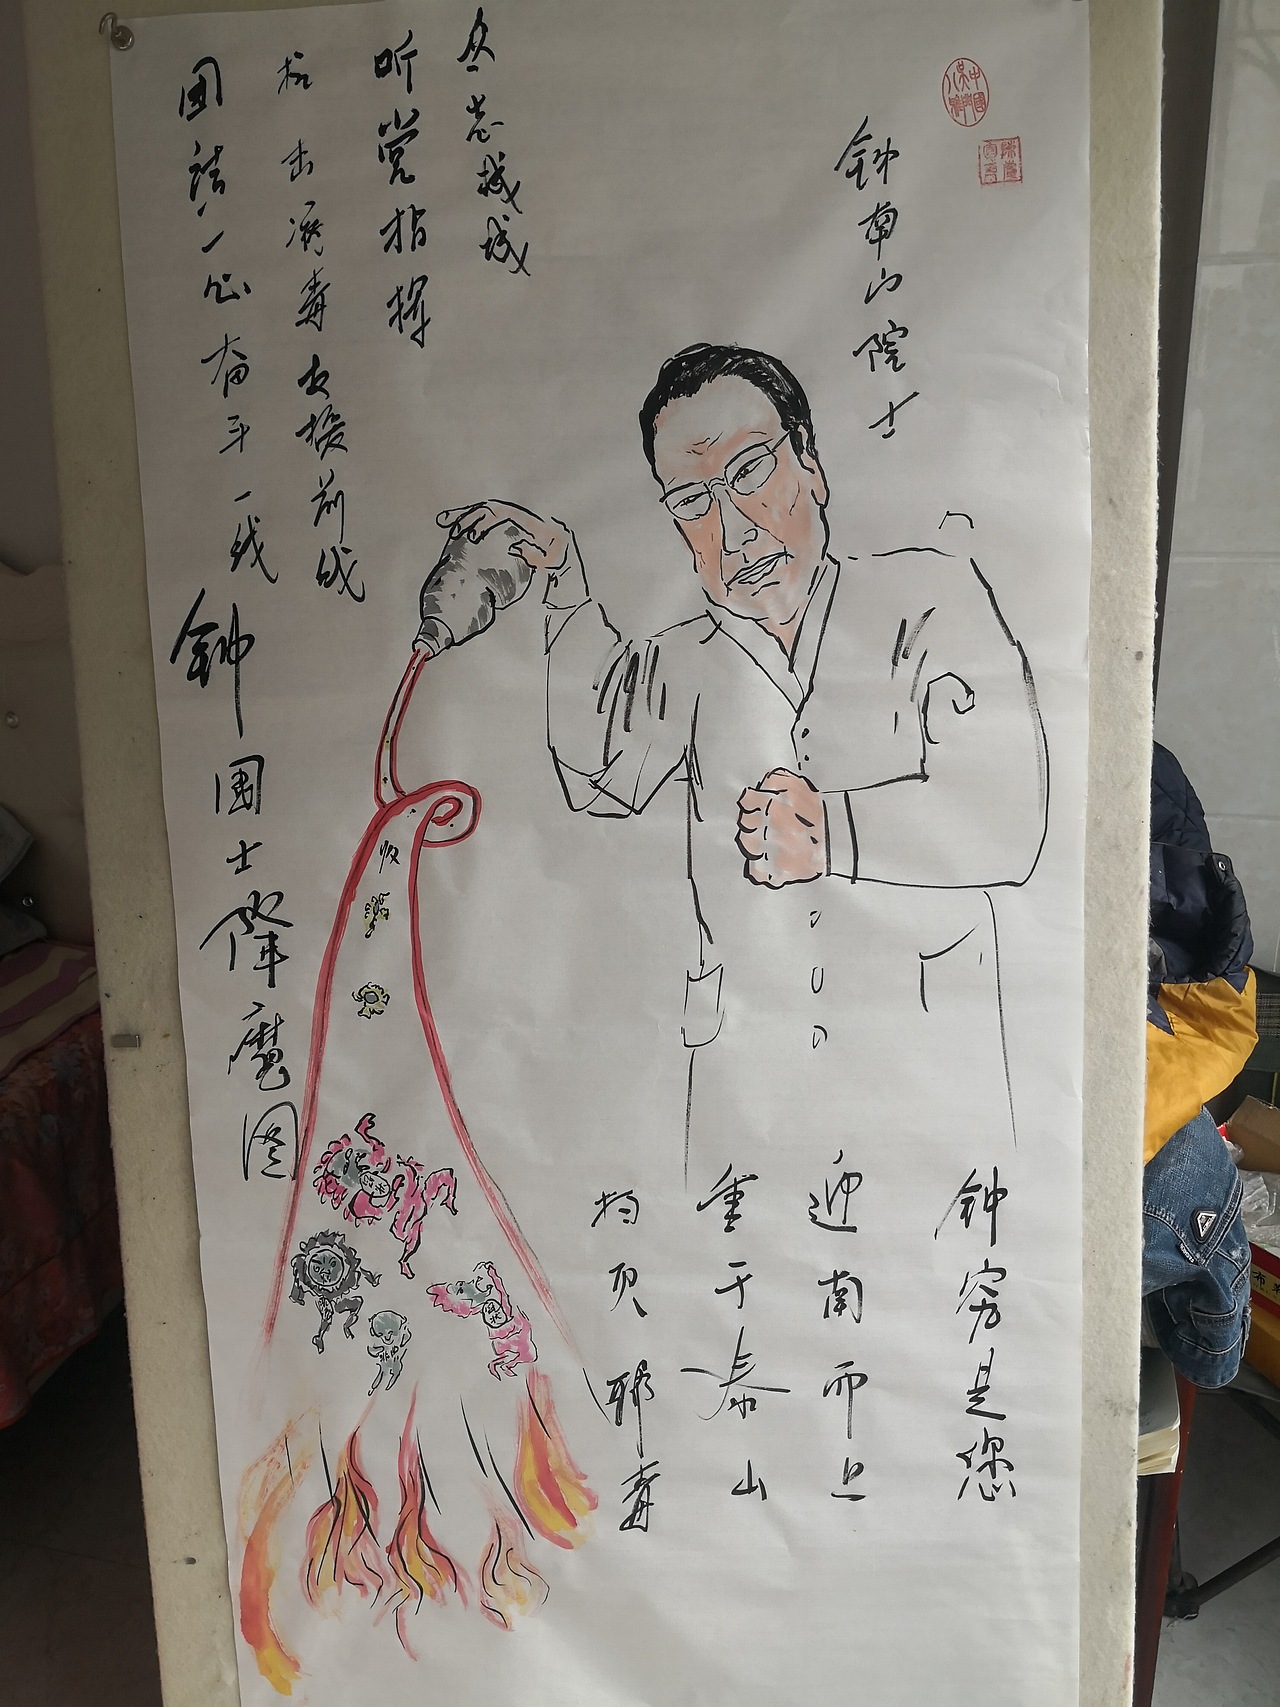 钟南山院士
众志城城
听党指挥
抗击病毒支援前线
团结一心奋斗一线
钟国士降魔图
收
钟穷是您
迎南而上
重于泰山
邪毒